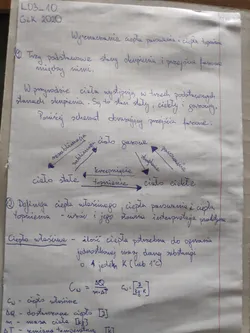 L03_10
GiK 2020
Wyznaczanie ciepła parowania i ciepła topnienia
① Trzy podstawowe stany skupienia i przejścia fazowe
między nimi.
W przyrodzie ciała występują w trzech podstawowych
stanach skupienia. Są to stan stały, ciekły i gazowy.
Poniżej schemat obrazujący przejścia fazowe:
ciało gazowe
sublimacja
resublimacja
skraplanie
parowanie
krzepnięcie
ciało stałe
topnienie
ciało ciekłe
② Definicja ciepła właściwego, ciepła parowania i ciepła
topnienia - wzór i jego słowna interpretacja
Ciepło właściwe - ilość ciepła potrzebna do ogrzania
jednostkowej masy danej substancji
o 1 K (lub 1°C)
Cw = ΔQ / m·ΔT
Cw = [J / kg·K]
Cw - ciepło właściwe
ΔQ - dostarczone ciepło [J]
m - masa ciała [kg]
ΔT - zmiana temperatury [K]